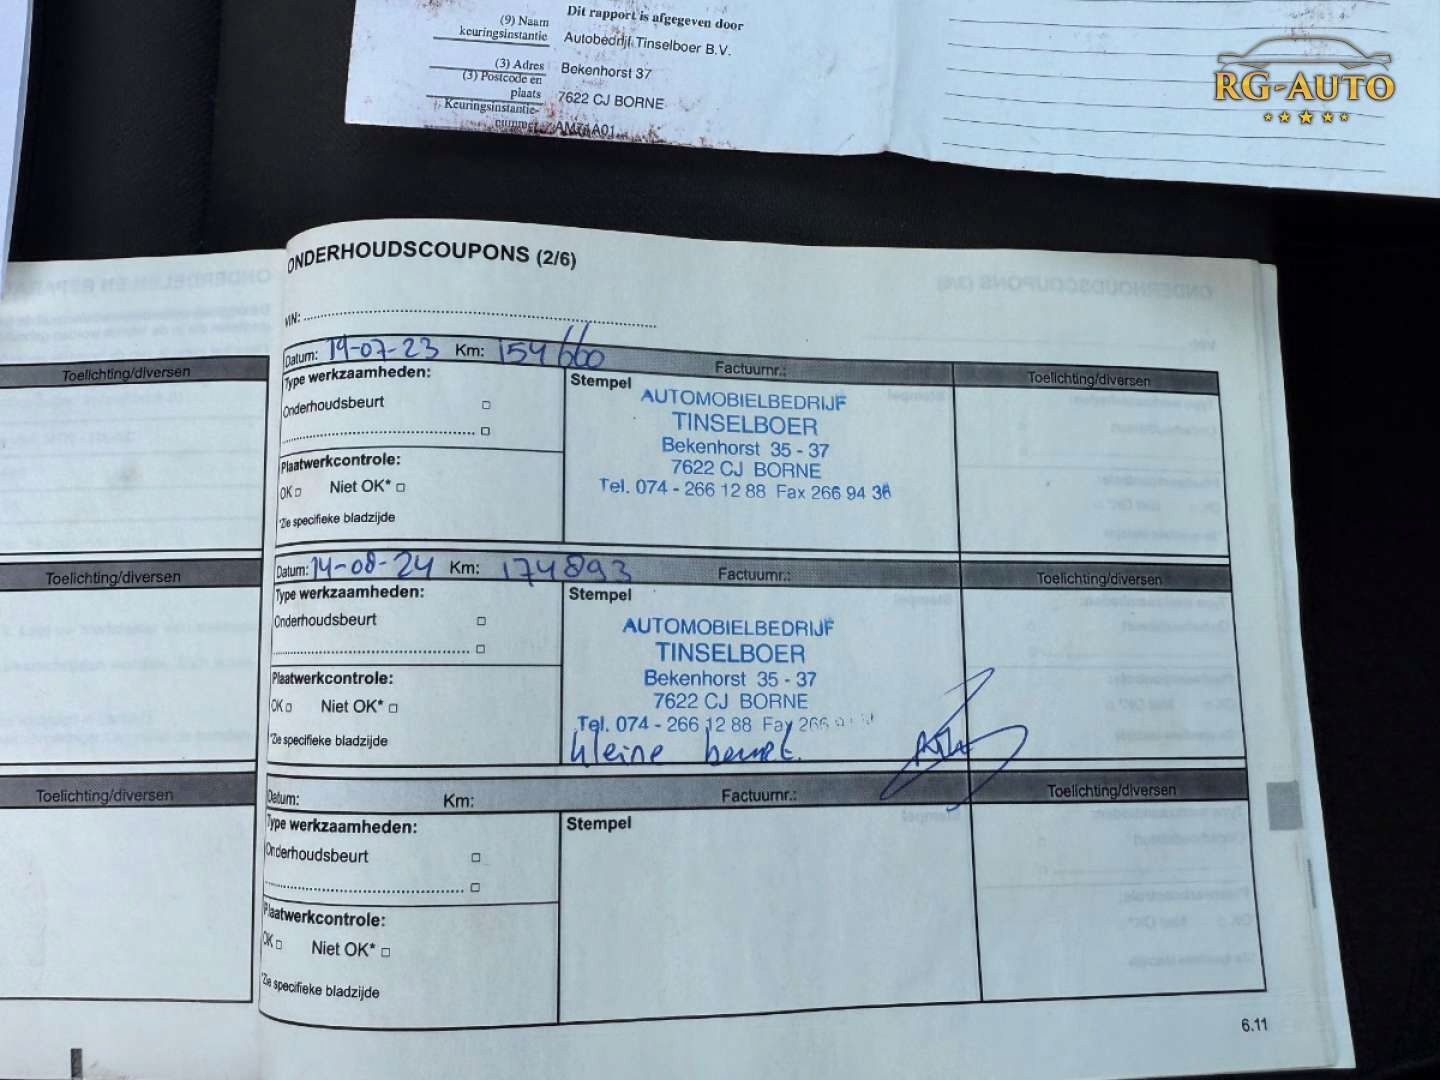 Dit rapport is afgegeven door
(9) Naam
keuringsinstantie
Autobedrijf Tinselboer B.V.
(3) Adres
Bekenhorst 37
(3) Postcode en
plaats
7622 CJ BORNE
Keuringsinstantie-
nummer
RG-AUTO
ONDERHOUDSCOUPONS (2/6)
VIN:
Datum: 19-07-23 Km: 154660 Factuurnr.: Toelichting/diversen
Type werkzaamheden:
Onderhoudsbeurt
Plaatwerkcontrole:
OK Niet OK*
*Zie specifieke bladzijde
Stempel
AUTOMOBIELBEDRIJF
TINSELBOER
Bekenhorst 35 - 37
7622 CJ BORNE
Tel. 074 - 266 12 88 Fax 266 94 36
Datum: 14-08-24 Km: 174893 Factuurnr.: Toelichting/diversen
Type werkzaamheden:
Onderhoudsbeurt
Plaatwerkcontrole:
OK Niet OK*
*Zie specifieke bladzijde
Stempel
AUTOMOBIELBEDRIJF
TINSELBOER
Bekenhorst 35 - 37
7622 CJ BORNE
Tel. 074 - 266 12 88 Fax 266
kleine beurt.
Datum: Km: Factuurnr.: Toelichting/diversen
Type werkzaamheden:
Onderhoudsbeurt
Plaatwerkcontrole:
OK Niet OK*
*Zie specifieke bladzijde
Stempel
6.11
Toelichting/diversen
Toelichting/diversen
Toelichting/diversen